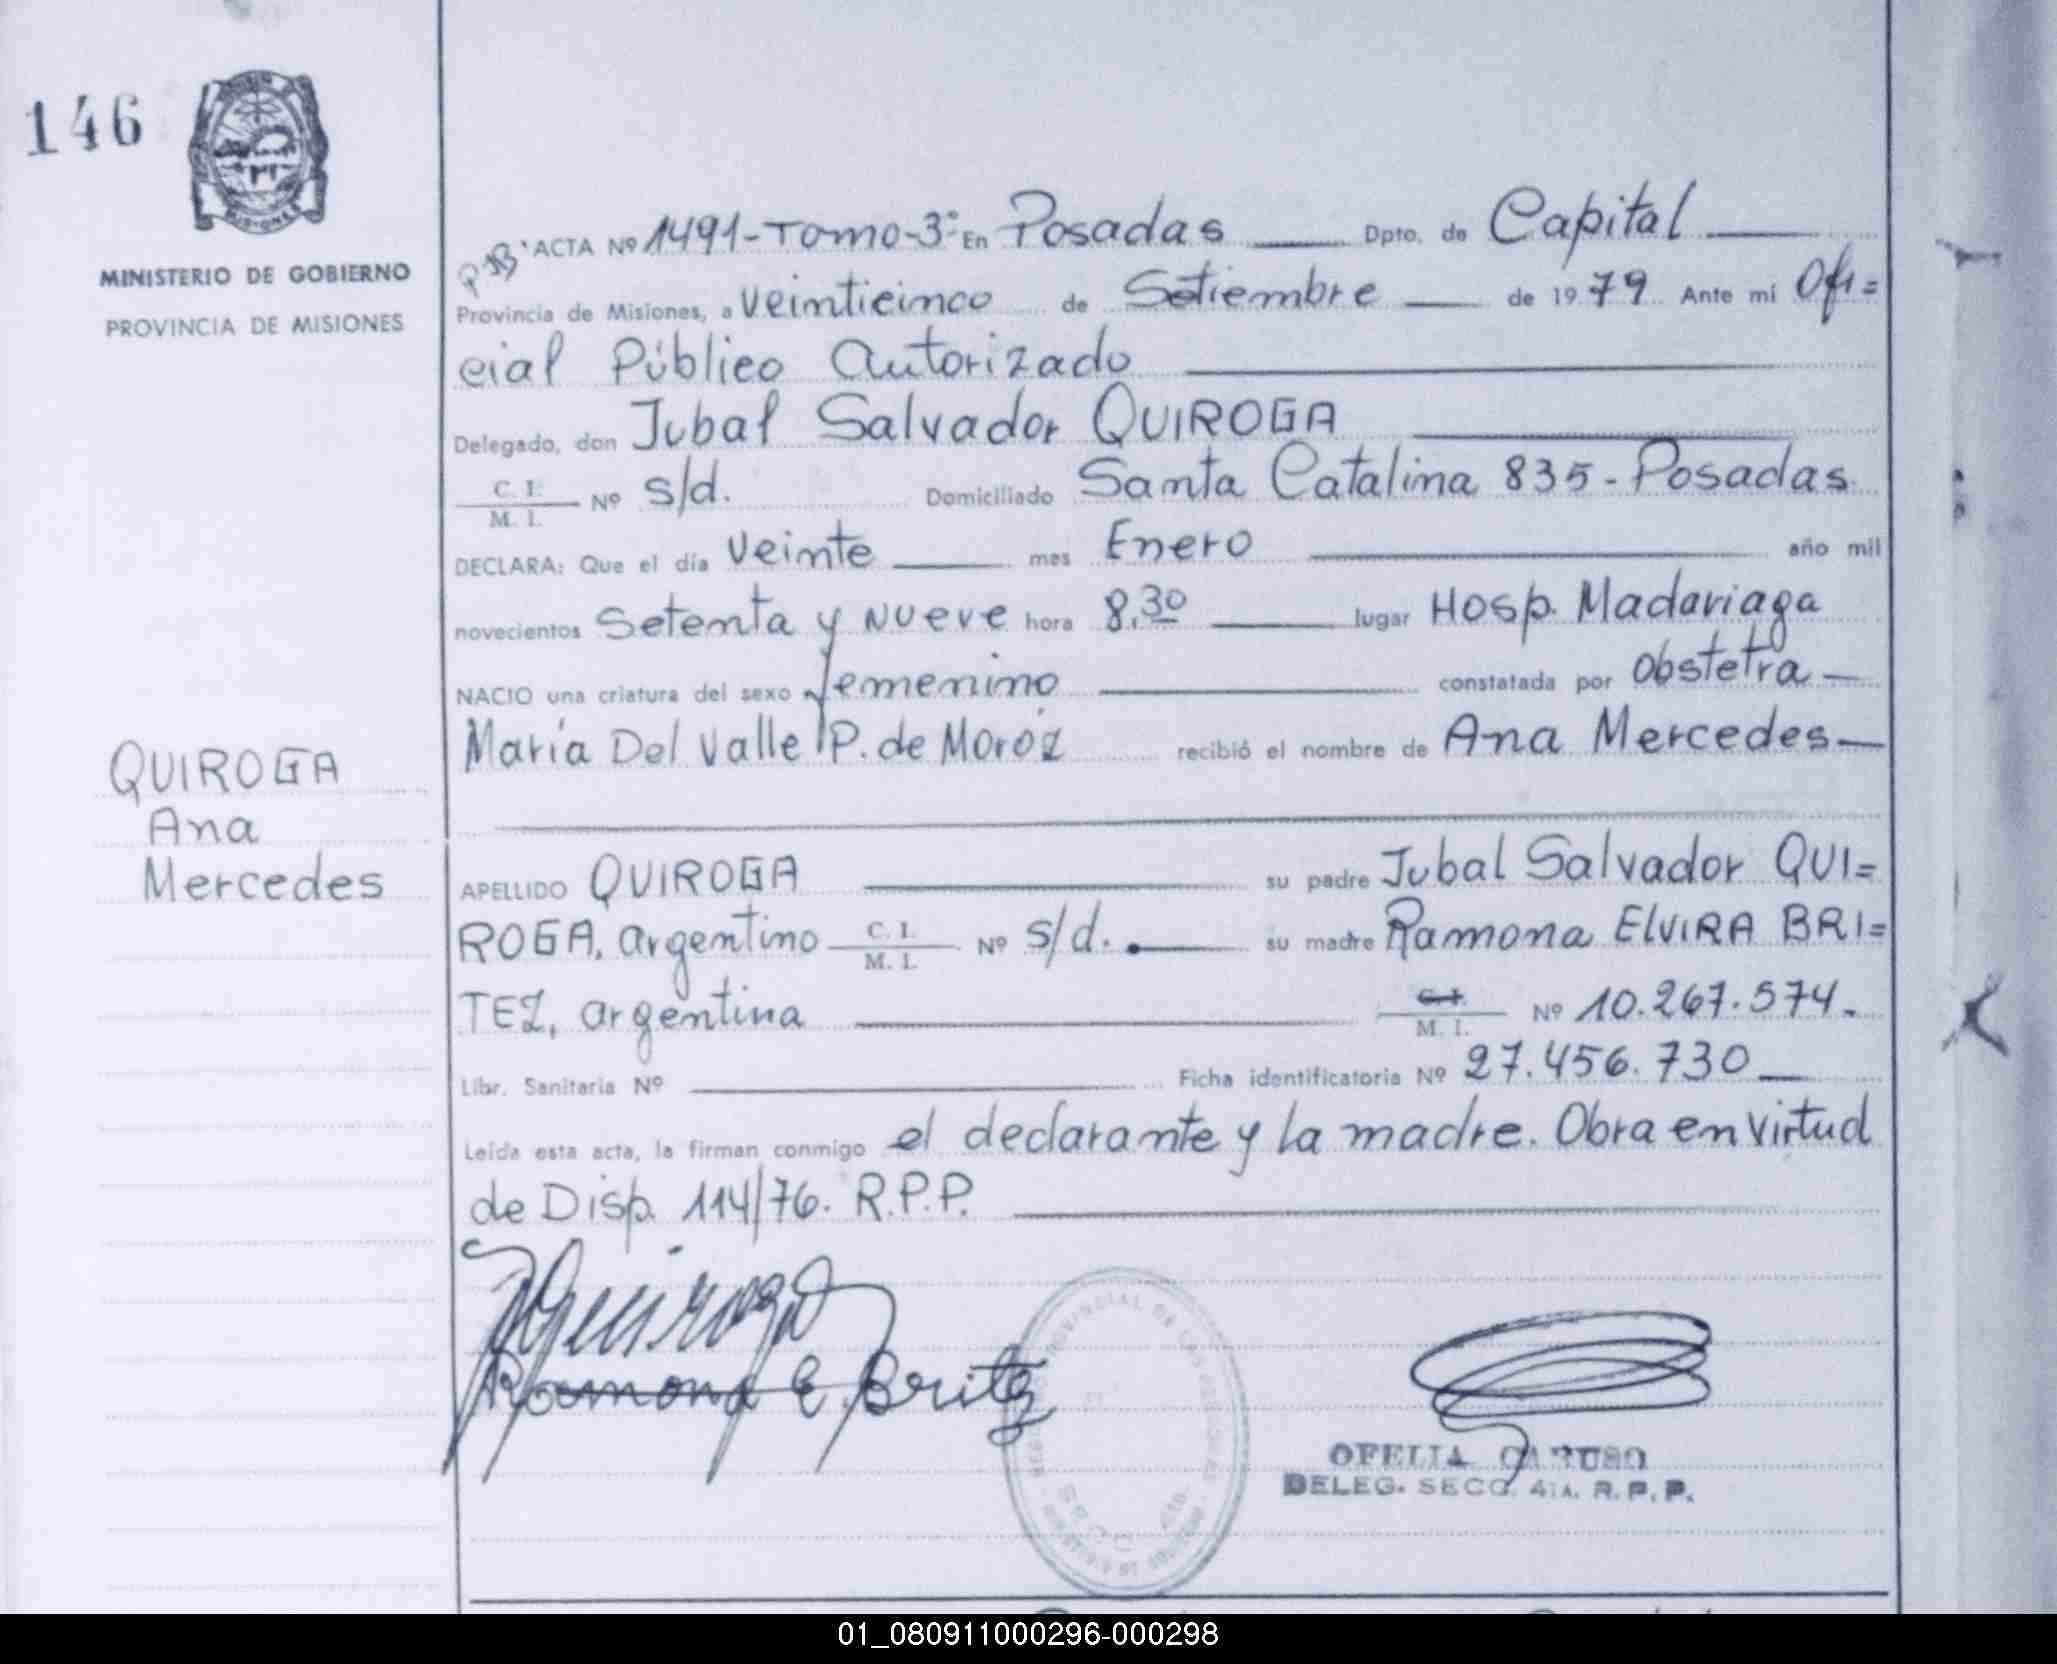 146
MINISTERIO DE GOBIERNO
PROVINCIA DE MISIONES
ACTA Nº 1491-Tomo-3º En Posadas Dpto. de Capital
Provincia de Misiones, a Veinticinco de Setiembre de 1979 Ante mí Ofi=
cial Público Autorizado
Delegado, don Jubal Salvador QUIROGA
C. I.
M. I. Nº s/d. Domiciliado Santa Catalina 835 - Posadas
DECLARA: Que el día Veinte mes Enero año mil
novecientos Setenta y Nueve hora 8.30 lugar Hosp. Madariaga
NACIO una criatura del sexo femenino constatada por Obstetra
María Del Valle P. de Moroz recibió el nombre de Ana Mercedes
QUIROGA
Ana
Mercedes
APELLIDO QUIROGA su padre Jubal Salvador QUI=
ROGA, argentino C. I.
M. I. Nº s/d. su madre Ramona ElviRA BRI=
TEZ, argentina C. I.
M. I. Nº 10.267.574.
Libr. Sanitaria Nº Ficha identificatoria Nº 27.456.730
Leída esta acta, la firman conmigo el declarante y la madre. Obra en Virtud
de Disp. 114/76. R.P.P.
Quiroga
Ramona E. Britez
OFELIA CARUSO
DELEG. SECC. 4ta. R.P.P.
01_080911000296-000298